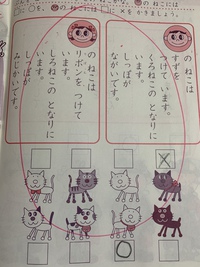 の ねこには
×を かきましょう。
の ねこは
すずを
つけて います。
くろねこの となりに
います。
しっぽが
ながいです。
の ねこは
リボンを つけて
います。
しろねこの となりに
います。
しっぽが
みじかいです。